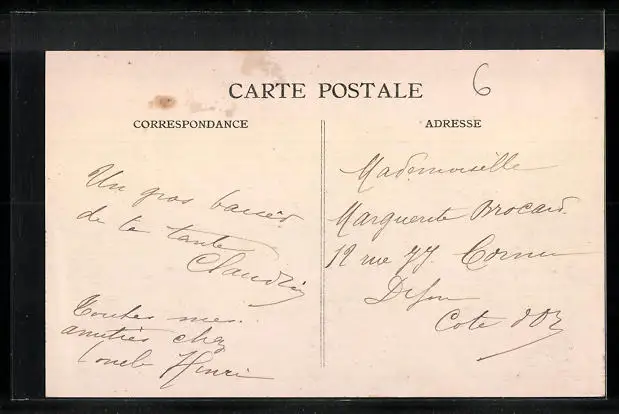 CARTE POSTALE
6
CORRESPONDANCE
Un gros baiser
de ta tante
Claudia
Toutes mes
amitiés chez
oncle Henri
ADRESSE
Mademoiselle
Marguerite Brocard
12 rue JJ. Cornu
Dijon
Cote d'Or